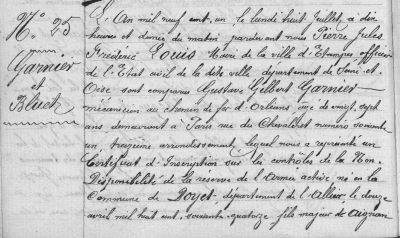 N° 25
Garnier
et
Bluet
L'An mil neuf cent un le lundi huit Juillet, à dix
heures et demie du matin pardevant nous Pierre Jules
Frédéric Louis Maire de la ville d'Etampes officier
de l'Etat civil de la dite ville département de Seine-et-
Oise sont comparus Gustave Gilbert Garnier
mécanicien au chemin de fer d'Orléans âgé de vingt sept
ans demeurant à Paris rue du Chevaleret numéro soixante
un, treizième arrondissement, lequel nous a représenté un
Certificat d'Inscription sur les contrôles de la Non-
Disponibilité de la réserve de l'Armée active, né en la
Commune de Doyet, département de l'Allier, le douze
avril mil huit cent soixante-quatorze fils majeur de Aignan